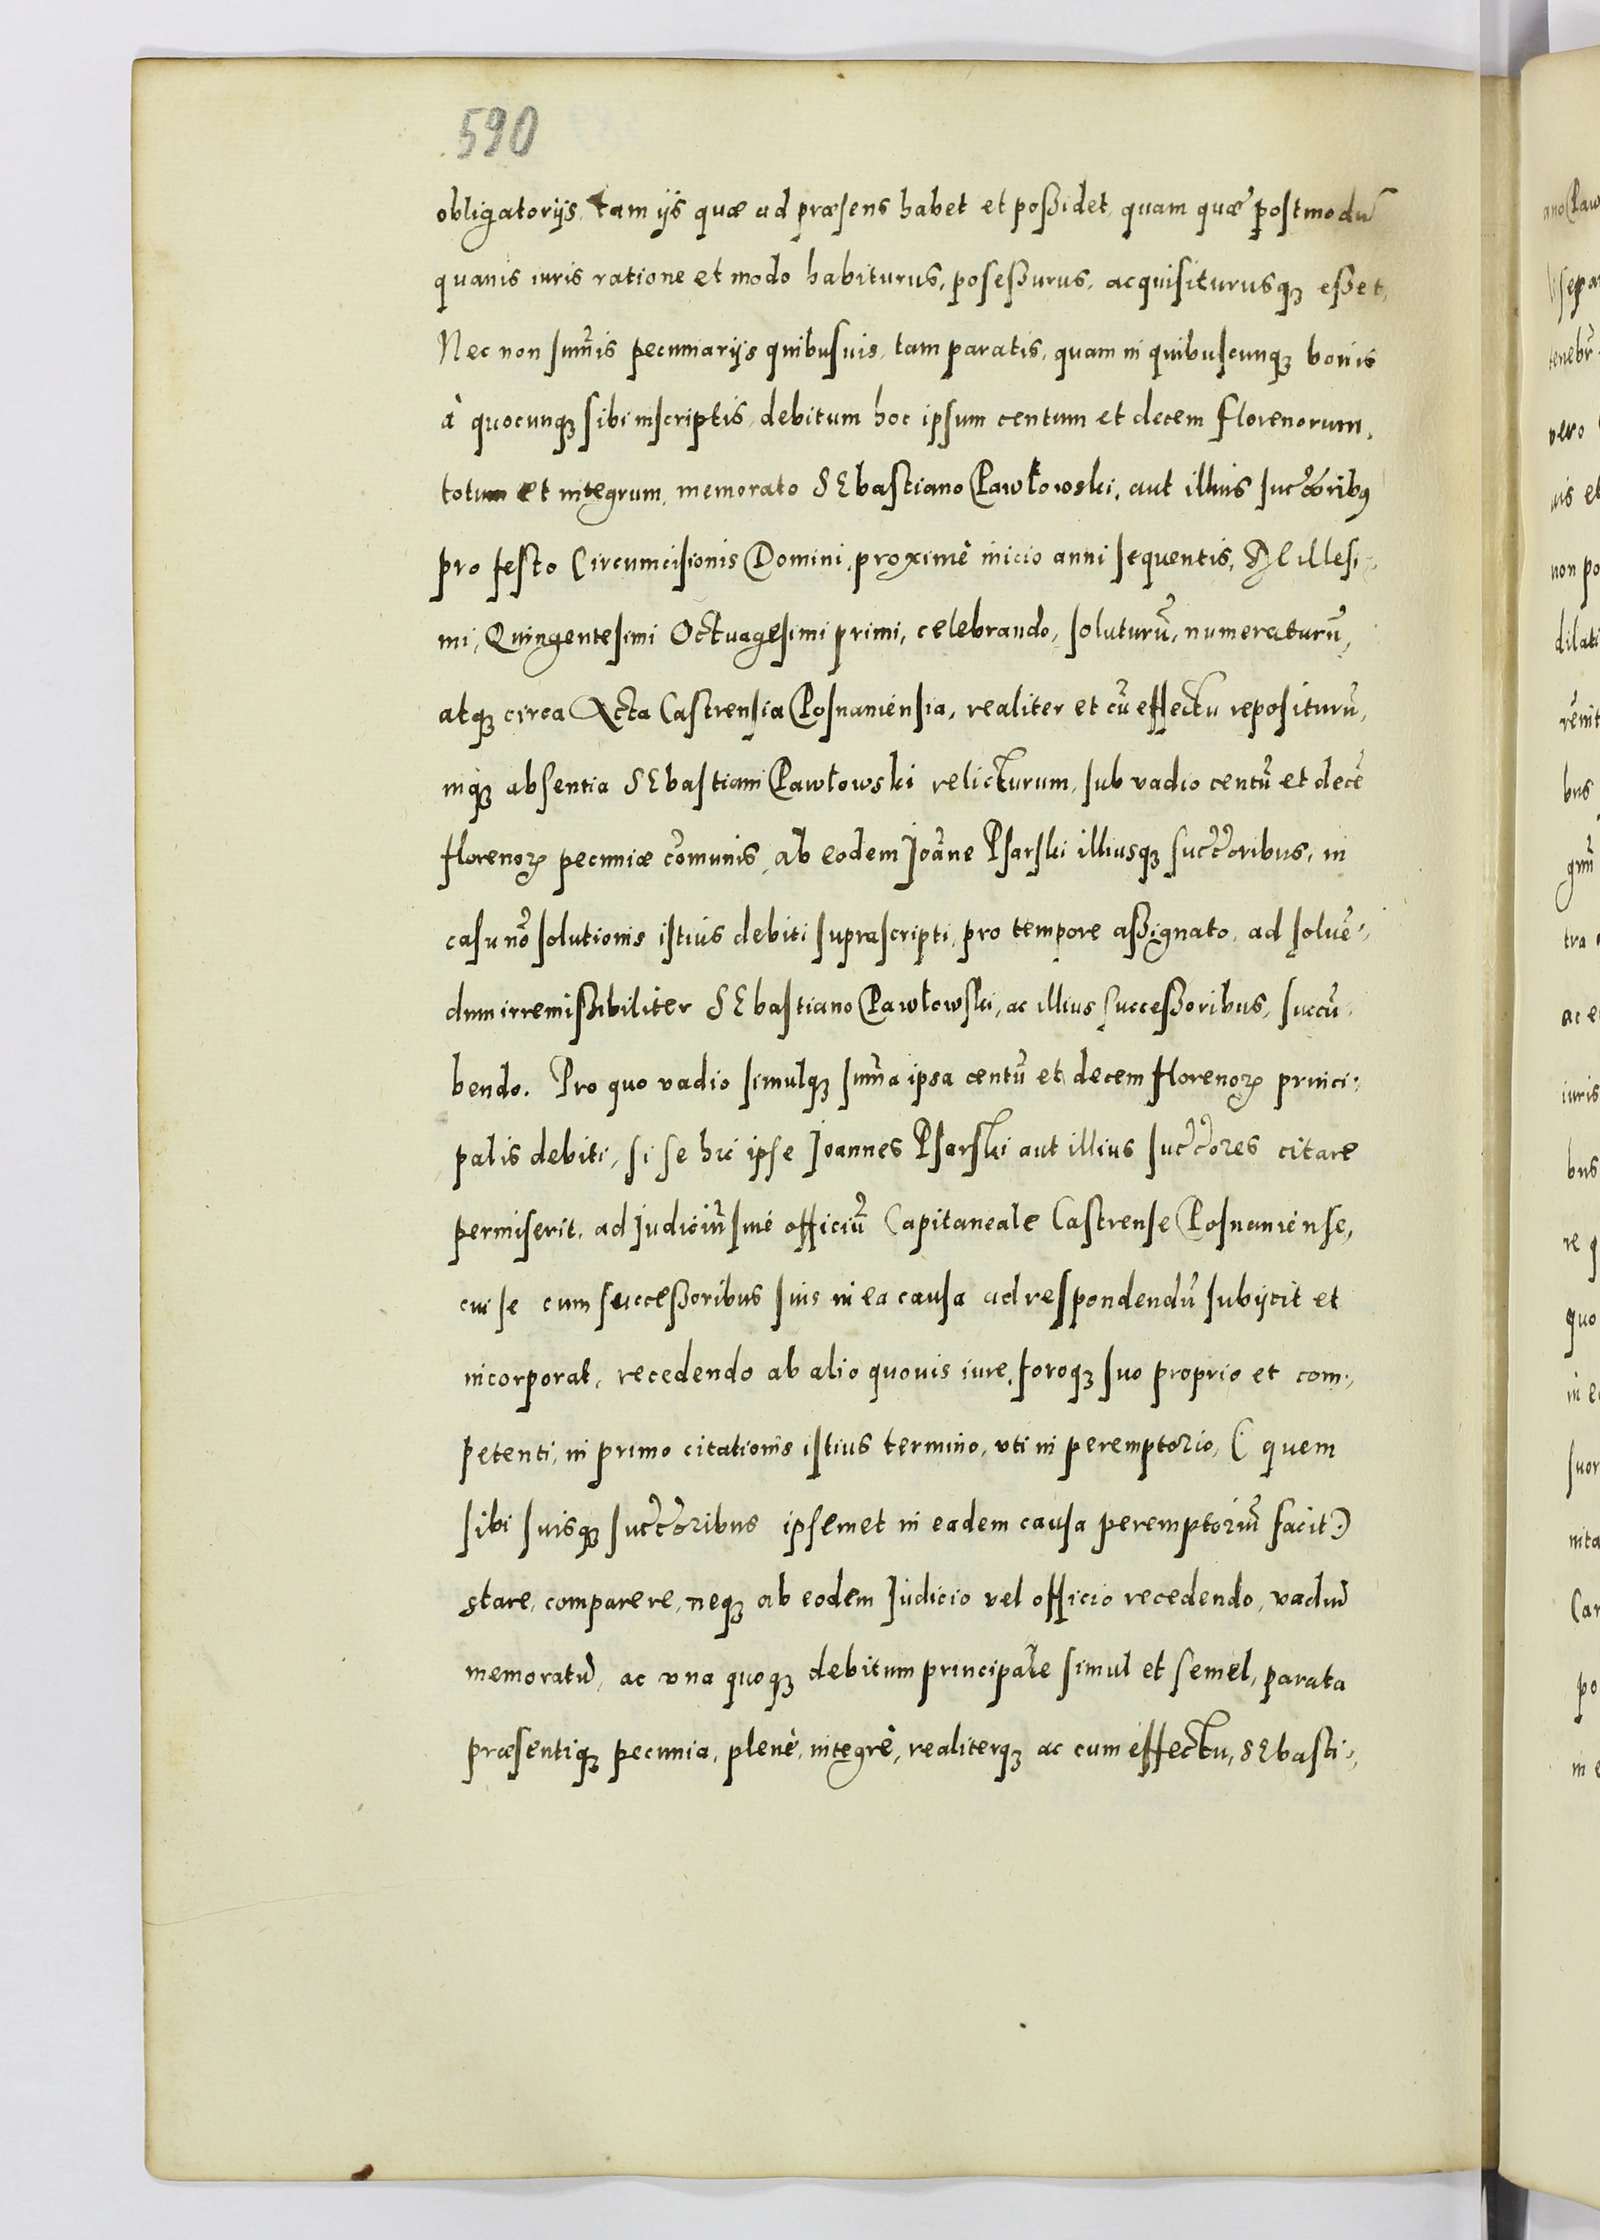 590
obligatorijs, tam ijs quæ ad præsens habet et poßidet, quam quæ postmodũ
quavis iuris ratione et modo habiturus, poseßurus, acquisiturusqꝫ eßet,
Nec non sum̃is pecuniarijs quibusuis, tam paratis, quam in quibuscunqꝫ bonis
à quocunqꝫ sibi inscriptis, debitum hoc ipsum centum et decem florenorum,
totum et integrum, memorato SEbastiano Pawłowski, aut illius suc̃c̃oribꝰ
pro festo Circumcisionis Domini, proximè inicio anni sequentis, Millesi-
mi, Quingentesimi Octuagesimi primi, celebrando, soluturũ, numeraturũ,
atqꝫ circa Acta Castrensia Posnaniensia, realiter et cũ effectu repositurũ,
inqꝫ absentia SEbastiani Pawłowski relicturum, sub vadio centũ et decẽ
florenoꝝ pecuniæ com̃unis, ab eodem Joãne Psarski illiusqꝫ suc̃c̃oribus, in
casu nõ solutionis istius debiti suprascripti, pro tempore aßignato, ad soluẽ-
dum irremißibiliter SEbastiano Pawłowski, ac illius succeßoribus, succũ-
bendo. Pro quo vadio simulqꝫ sum̃a ipsa centũ et decem florenoꝝ princi-
palis debiti, si se hic ipse Joannes Psarski aut illius suc̃c̃ores citare
permiserit, ad Judiciũ sivè officiũ Capitaneale Castrense Posnaniense,
cui se cum succeßoribus suis in ea causa ad respondendũ subijcit et
incorporat, recedendo ab alio quouis iure, foroqꝫ suo proprio et com-
petenti, in primo citationis istius termino, vti in peremptorio, (quem
sibi suisqꝫ suc̃c̃oribus ipsemet in eadem causa peremptoriũ facit)
stare, comparere, neqꝫ ab eodem Judicio vel officio recedendo, vadiũ
memoratũ, ac vna quoqꝫ debitum principale simul et semel, parata
præsentiqꝫ pecunia, plenè, integrè, realiterqꝫ ac cum effectu, SEbasti-